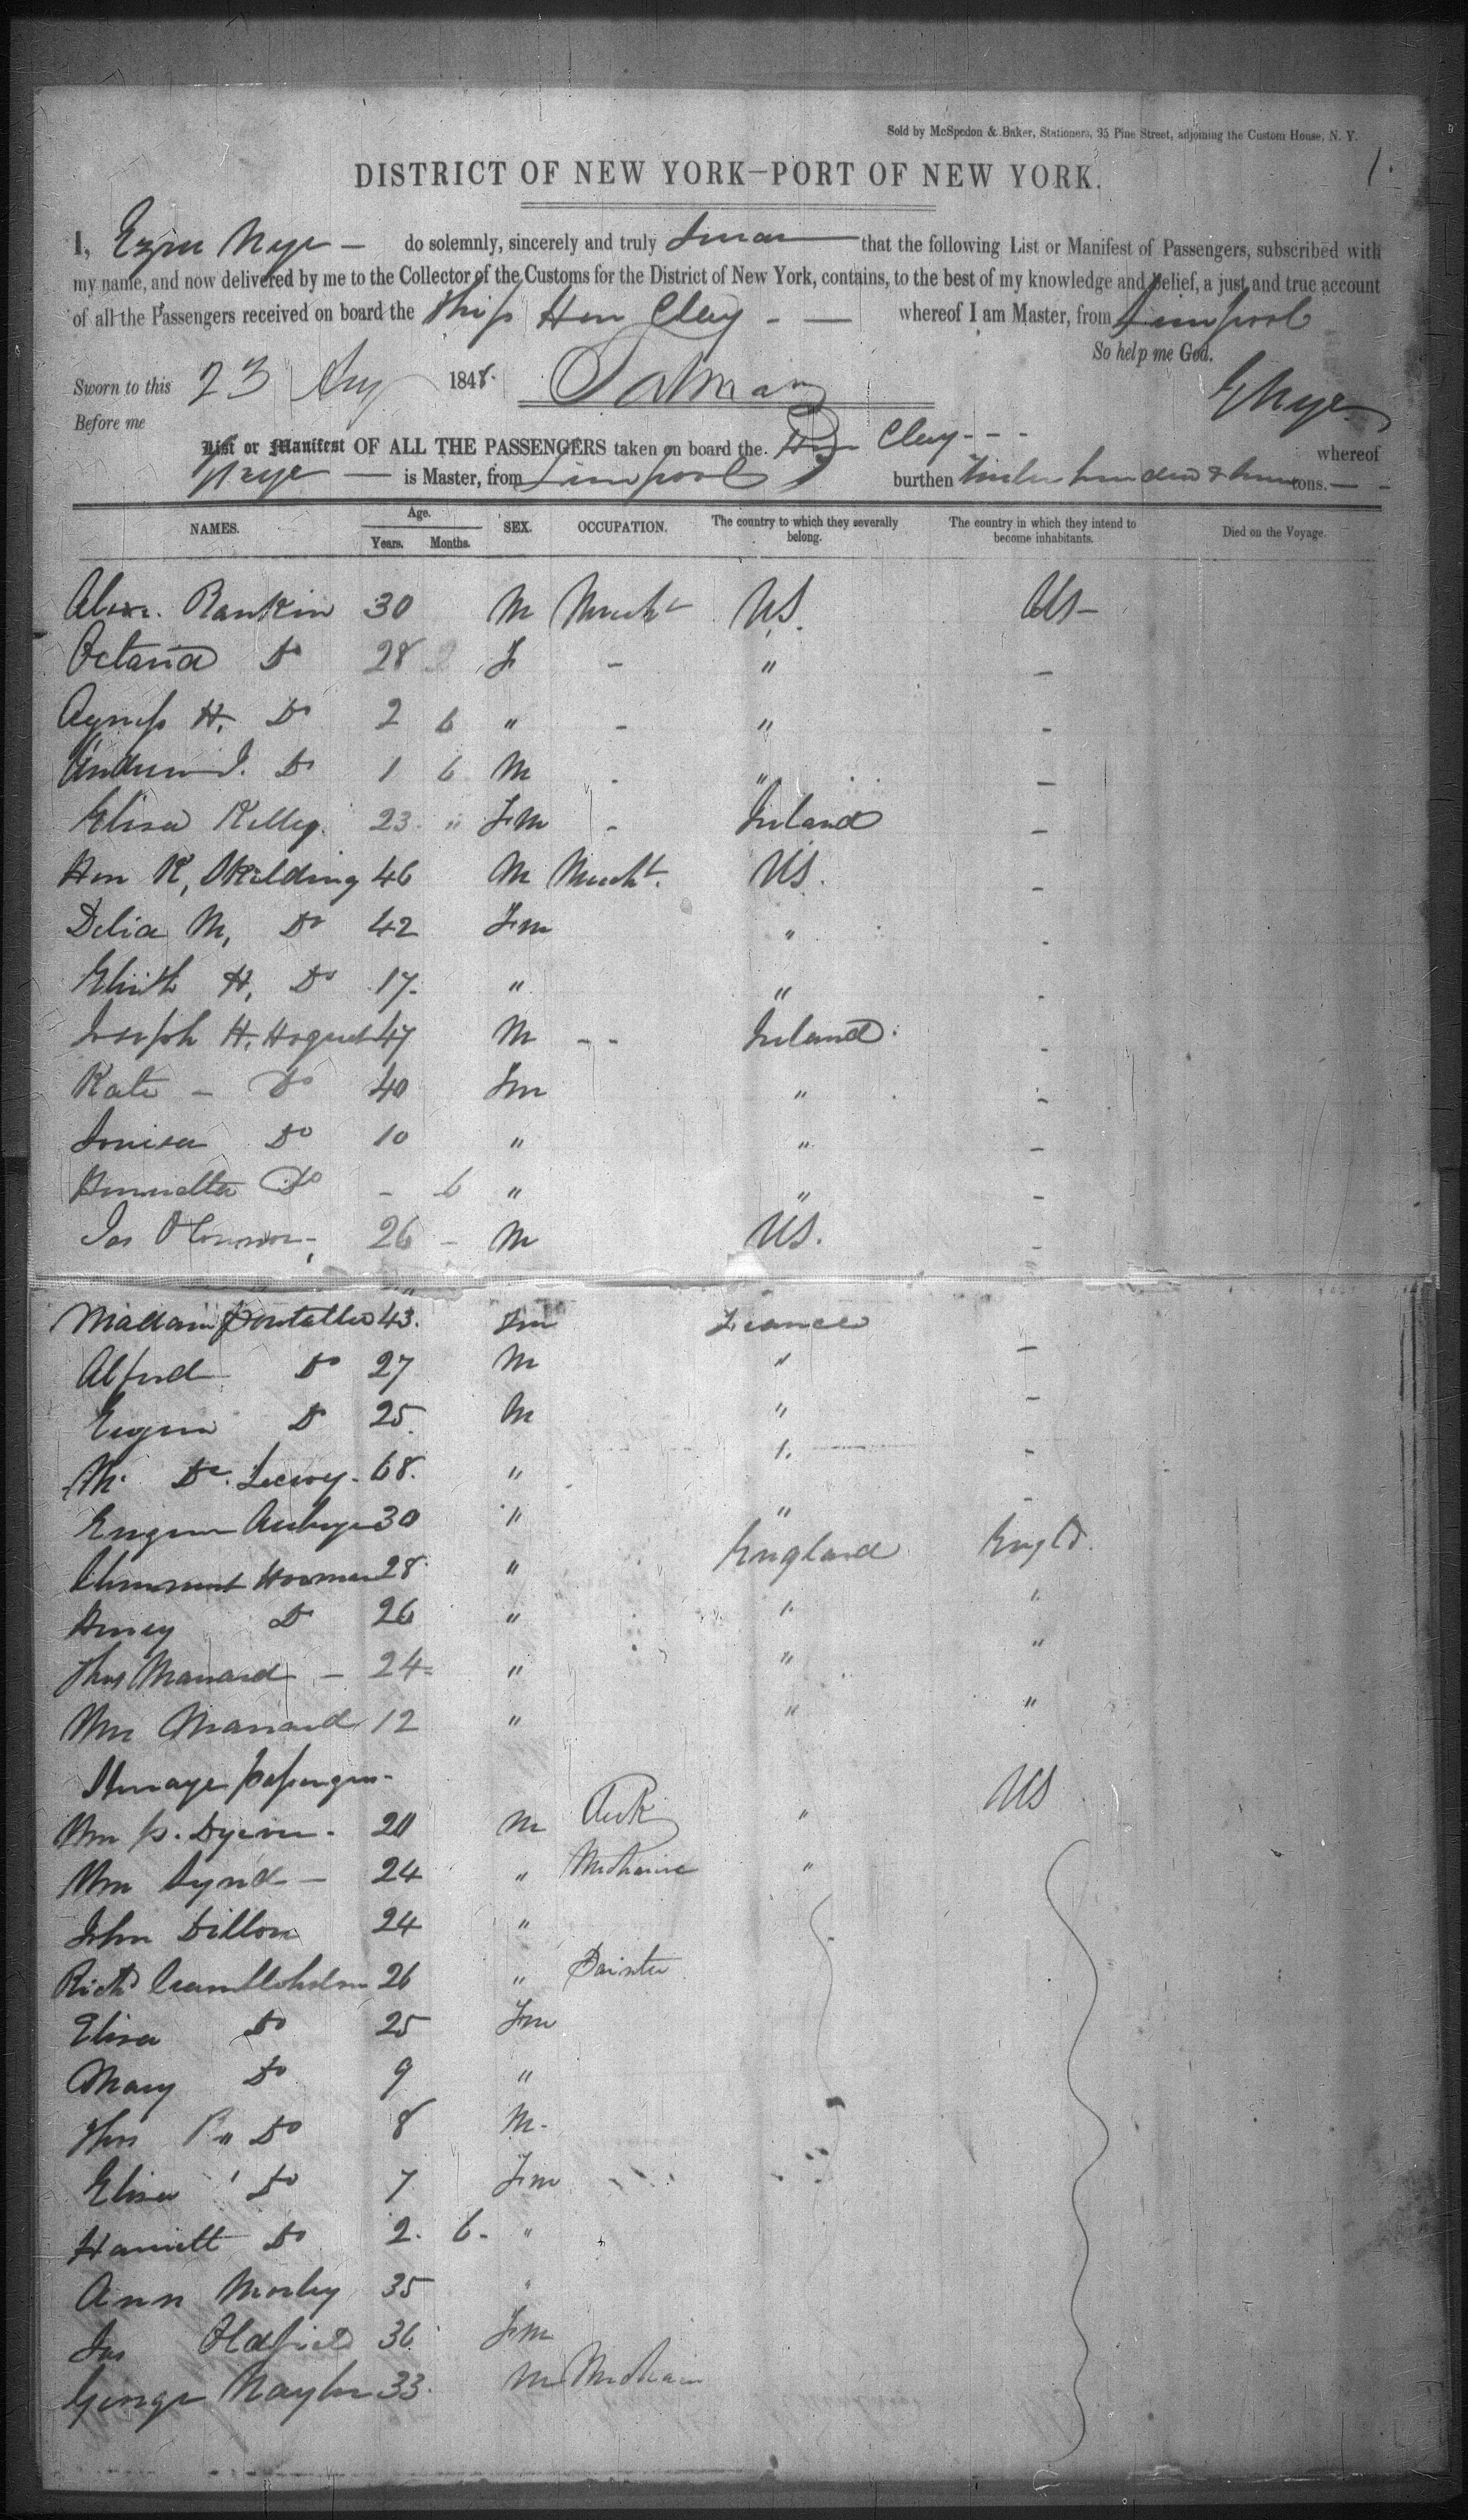 Sold by McSpedon & Baker, Stationers, 95 Pine Street, adjoining the Custom House, N. Y.
1.
DISTRICT OF NEW YORK—PORT OF NEW YORK.
I, Ezra Nye — do solemnly, sincerely and truly swear that the following List or Manifest of Passengers, subscribed with
my name, and now delivered by me to the Collector of the Customs for the District of New York, contains, to the best of my knowledge and belief, a just and true account
of all the Passengers received on board the Ship Hen Clay - — whereof I am Master, from Liverpool
So help me God.
Sworn to this 23 Aug 1848.
E Nye
Before me
List or Manifest OF ALL THE PASSENGERS taken on board the Clay - - - whereof
Nye — is Master, from Liverpool burthen hundred & tons. — -
NAMES. Age. Years. Months. SEX. OCCUPATION. The country to which they severally belong. The country in which they intend to become inhabitants. Died on the Voyage.
Alexr. Rankin 30 M Mercht US. US -
Octavia Do 28 F - " -
Agness H. Do 2 6 " - " -
Andrew J. Do 1 6 M - " -
Elisa Kelley 23 " Fm - Ireland -
Hen K, Skelding 46 M Mercht. US. -
Delia M, Do 42 Fm " -
H, Do 17 " " -
Joseph H, Hoguet 47 M - - Ireland -
Kate - Do 40 Fm " -
Louisa Do 10 " " -
Henrietta Do - 6 " " -
Jas O'Connor 26 - M US. -
Madam 43. Fm France
Alfred Do 27 M " -
Eugene Do 25 M " -
M. De. 68. " " -
Eugene 30 " " -
28 " England Engld.
Henry Do 26 " " "
Thos Manard - 24 " " "
Wm Manard 12 " " "
Steerage passengers -
Wm P. 20 M " US
Wm Lynd - 24 " Mechanic "
John Dillon 24 "
Richd 26 " Painter
Elisa Do 25 Fm
Mary Do 9 "
Thos R " Do 8 M.
Elisa Do 7 Fm
Harriett Do 2. 6. "
Ann Morley 35 "
Jas Oldfield 36 Fm
George Naylor 33. M Mechanic